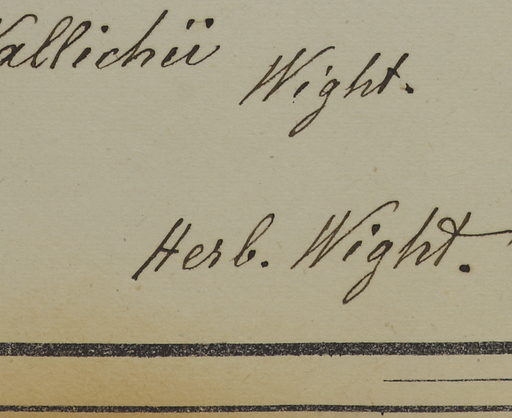 Wallichii Wight.
Herb. Wight.